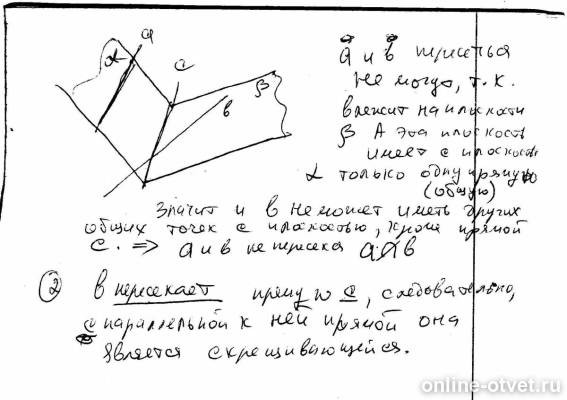 a
α
c
β
в
a и в пересеться
не могу, т.к.
в лежит на плоскости
β А эта плоскость
имеет с плоскость
α только одну прямую
(общую)
Значит и в не может иметь других
общих точек с плоскостью, кроме прямой
с. => а и в не пересека a∩в
② в пересекает прямую с, следовательно,
с параллельной к ней прямой она
является скрещивающейся.
online-otvet.ru